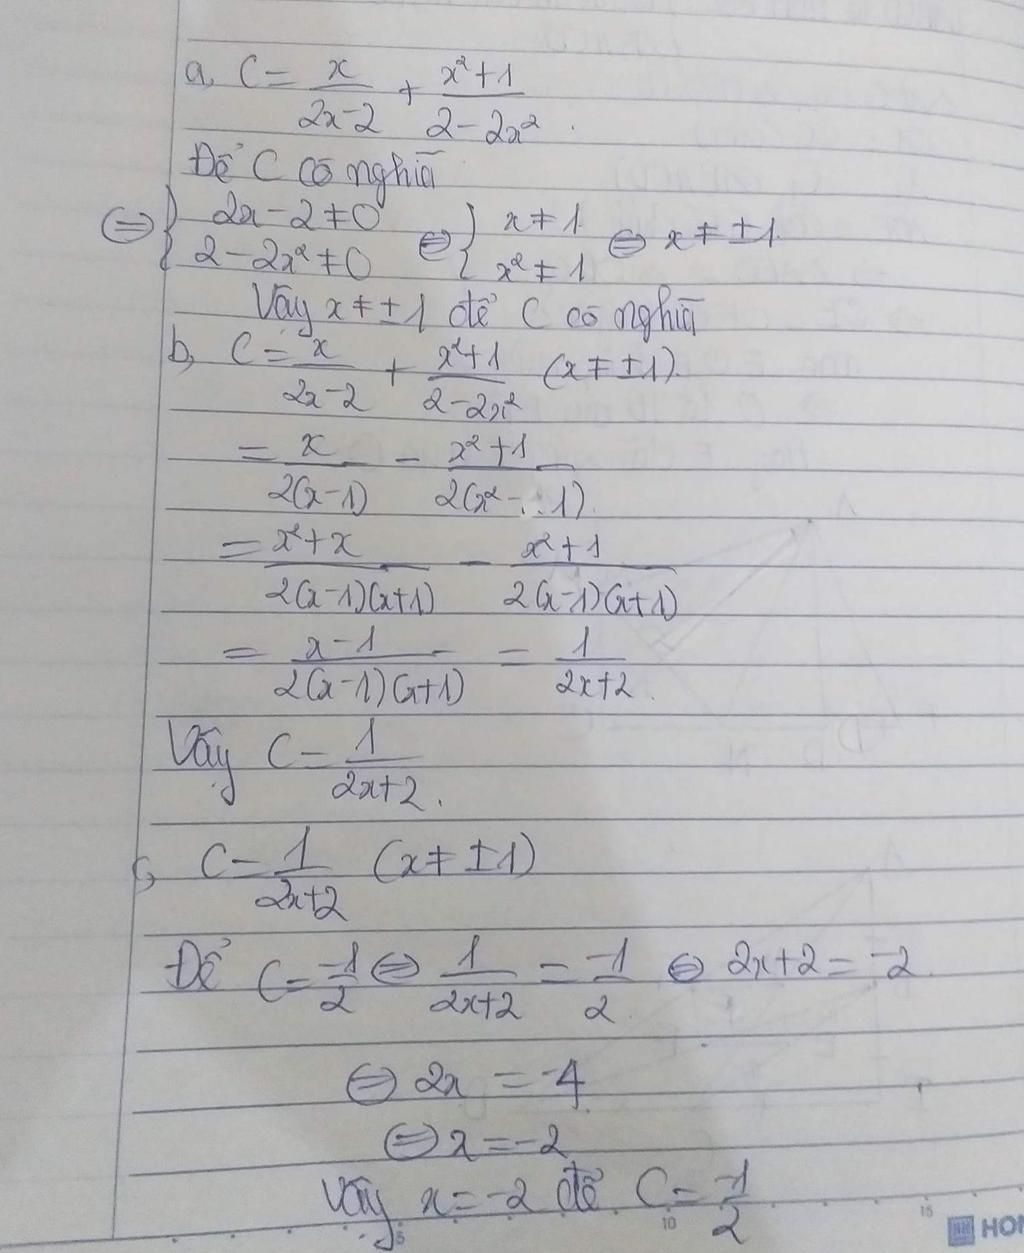 a, C = x/(2x-2) + (x²+1)/(2-2x²).
Để C có nghĩa
⇔ { 2x-2≠0 ; 2-2x²≠0 ⇔ { x≠1 ; x²≠1 ⇔ x≠±1
Vậy x≠±1 để C có nghĩa
b, C = x/(2x-2) + (x²+1)/(2-2x²) (x≠±1).
= x/(2(x-1)) - (x²+1)/(2(x²-1)).
= (x²+x)/(2(x-1)(x+1)) - (x²+1)/(2(x-1)(x+1))
= (x-1)/(2(x-1)(x+1)) = 1/(2x+2).
Vậy C = 1/(2x+2).
c, C = 1/(2x+2) (x≠±1)
Để C = -1/2 ⇔ 1/(2x+2) = -1/2 ⇔ 2x+2 = -2
⇔ 2x = -4
⇔ x = -2
Vậy x = -2 để C = -1/2
5 10 15 HON